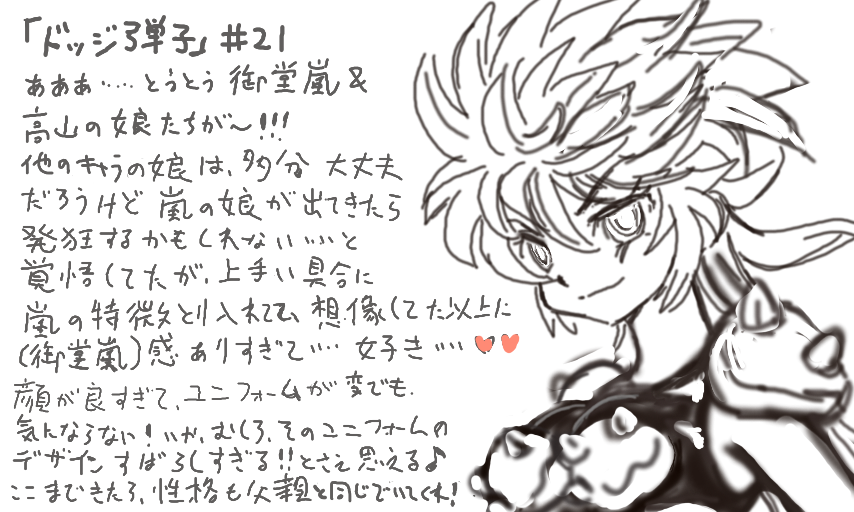 「ドッジ弾子」#21
あああ……とうとう御堂嵐&
高山の娘たちが〜!!!
他のキャラの娘は、多分大丈夫
だろうけど嵐の娘が出てきたら
発狂するかもしれない……と
覚悟してたが、上手い具合に
嵐の特徴とり入れてて、想像してた以上に
(御堂嵐)感ありすぎて…… 好き……♥♥
顔が良すぎて、ユニフォームが変でも、
気にならない!いか、むしろ、そのユニフォームの
デザインすばらしすぎる!!とさえ思える♪
ここまできたら、性格も父親と同じでいてくれ!